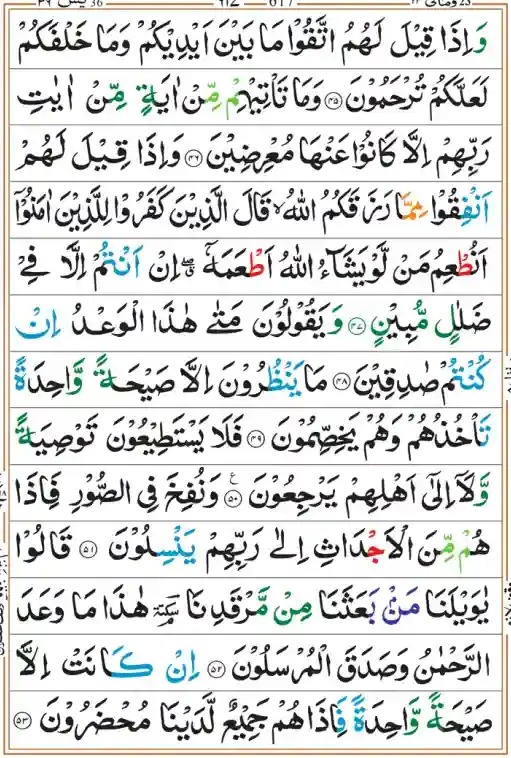 وَاِذَا قِيْلَ لَهُمُ اتَّقُوْا مَا بَيْنَ اَيْدِيْكُمْ وَمَا خَلْفَكُمْ
لَعَلَّكُمْ تُرْحَمُوْنَ ﴿۴۵﴾ وَمَا تَاْتِيْهِمْ مِّنْ اٰيَةٍ مِّنْ اٰيٰتِ
رَبِّهِمْ اِلَّا كَانُوْا عَنْهَا مُعْرِضِيْنَ ﴿۴۶﴾ وَاِذَا قِيْلَ لَهُمْ
اَنْفِقُوْا مِمَّا رَزَقَكُمُ اللّٰهُ ۙ قَالَ الَّذِيْنَ كَفَرُوْا لِلَّذِيْنَ اٰمَنُوْۤا
اَنُطْعِمُ مَنْ لَّوْ يَشَآءُ اللّٰهُ اَطْعَمَهٗۤ ۖ اِنْ اَنْتُمْ اِلَّا فِيْ
ضَلٰلٍ مُّبِيْنٍ ﴿۴۷﴾ وَيَقُوْلُوْنَ مَتٰى هٰذَا الْوَعْدُ اِنْ
كُنْتُمْ صٰدِقِيْنَ ﴿۴۸﴾ مَا يَنْظُرُوْنَ اِلَّا صَيْحَةً وَّاحِدَةً
تَاْخُذُهُمْ وَهُمْ يَخِصِّمُوْنَ ﴿۴۹﴾ فَلَا يَسْتَطِيْعُوْنَ تَوْصِيَةً
وَّلَاۤ اِلٰۤى اَهْلِهِمْ يَرْجِعُوْنَ ﴿۵۰﴾ وَنُفِخَ فِي الصُّوْرِ فَاِذَا
هُمْ مِّنَ الْاَجْدَاثِ اِلٰى رَبِّهِمْ يَنْسِلُوْنَ ﴿۵۱﴾ قَالُوْا
يٰوَيْلَنَا مَنْۢ بَعَثَنَا مِنْ مَّرْقَدِنَا ۘ سكتة هٰذَا مَا وَعَدَ
الرَّحْمٰنُ وَصَدَقَ الْمُرْسَلُوْنَ ﴿۵۲﴾ اِنْ كَانَتْ اِلَّا
صَيْحَةً وَّاحِدَةً فَاِذَا هُمْ جَمِيْعٌ لَّدَيْنَا مُحْضَرُوْنَ ﴿۵۳﴾